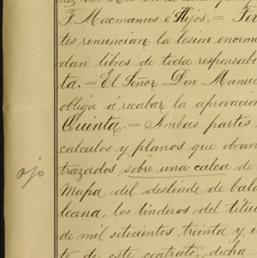 F. Macmanus é Hijos. = Ter
tes renuncian la lesion enorm
dan libres de toda responsab
ta. = El Señor Don Manue
obliga á recabar la aprovacion
Quinta. = Ambas partes
calculos y planos que obran
trazados sobre una calca de
ojo
Mapa del deslinde de bald
leana, los linderos del titu
de mil setecientos, treinta y
to de este contrato; dicha